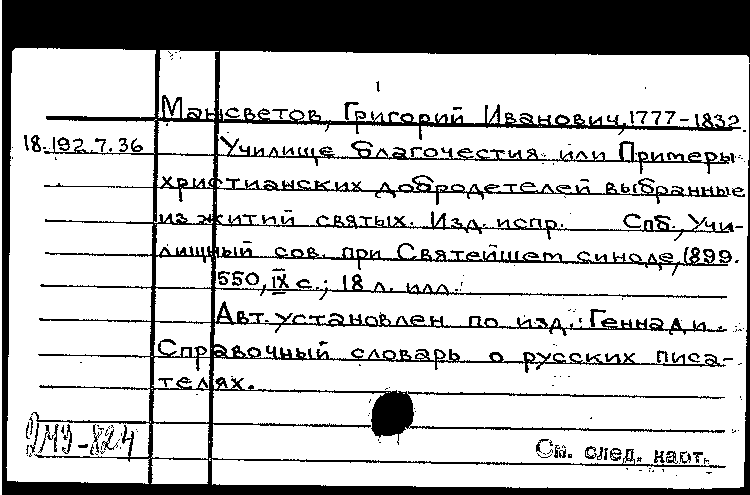 1
Мансветов, Григорий Иванович, 1777-1832.
18.192.7.36 Училище благочестия или Примеры
христианских добродетелей выбранные
из житий святых. Изд. испр. Спб., Учи-
лищный сов. при Святейшем синоде, 1899.
550, IX с.; 18 л. илл.
Авт. установлен по изд.: Геннади.
Справочный словарь о русских писа-
телях.
См. след. карт.